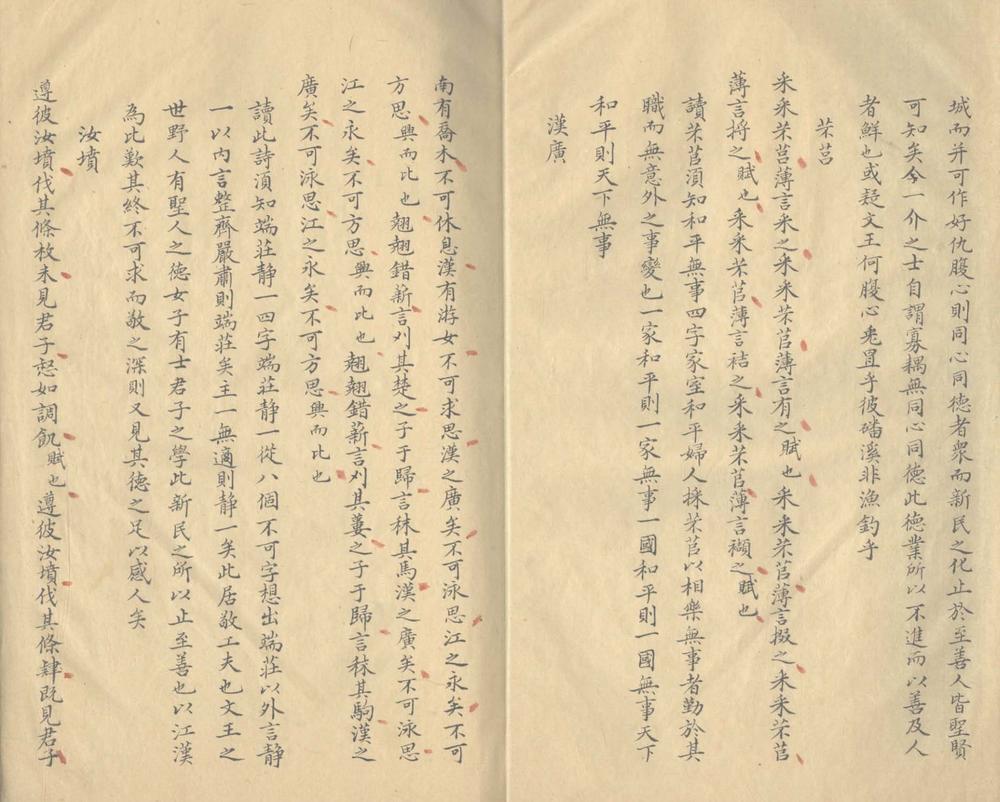 城而并可作好仇腹心則同心同徳者衆而新民之化止於至善人皆聖賢
可知矣今一介之士自謂寡耦無同心同德此德業所以不進而以善及人
者鮮也或疑文王何腹心兎罝乎彼磻溪非漁釣乎
芣苢
采采芣苢薄言采之采采芣苢薄言有之賦也采采芣苢薄言掇之采采芣苢
薄言捋之賦也采采芣苢薄言袺之采采芣苢薄言襭之賦也
讀芣苢須知和平無事四字家室和平婦人採芣苢以相樂無事者勤於其
職而無意外之事變也一家和平則一家無事一國和平則一國無事天下
和平則天下無事
漢廣
南有喬木不可休息漢有游女不可求思漢之廣矣不可泳思江之永矣不可
方思興而比也翹翹錯薪言刈其楚之子于歸言秣其馬漢之廣矣不可泳思
江之永矣不可方思興而比也翹翹錯薪言刈其蔞之子于歸言秣其駒漢之
廣矣不可泳思江之永矣不可方思興而比也
讀此詩須知端莊静一四字端莊静一從八個不可字想出端莊以外言静
一以内言整齊嚴肅則端莊矣主一無適則静一矣此居敬工夫也文王之
世野人有聖人之徳女子有士君子之學此新民之所以止至善也以江漢
為比歎其終不可求而敬之深則又見其徳之足以感人矣
汝墳
遵彼汝墳伐其條枚未見君子惄如調飢賦也遵彼汝墳伐其條肄既見君子